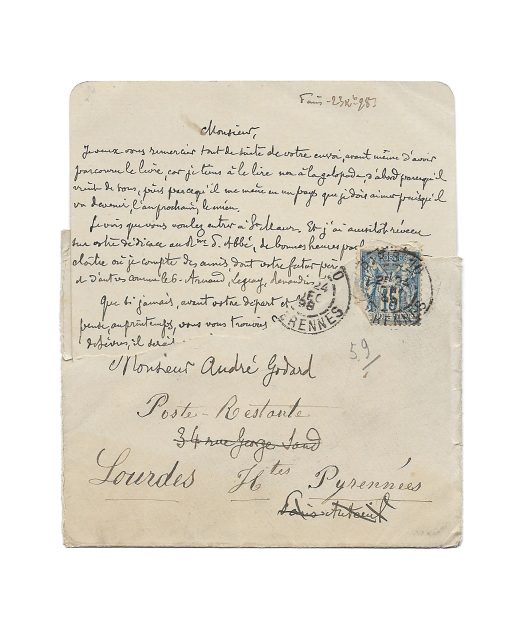 Paris - 23 Xbre 98
Monsieur,
Je veux vous remercier tout de suite de votre envoi, avant même d'avoir
parcouru le livre, car je tiens à le lire non à la galopade, d'abord parce qu'il
vient de vous, puis parce qu'il me mène en un pays que je dois aimer puisqu'il
va devenir, l'an prochain, le mien.
Je vois que vous voulez entrer à St Maur. Et j'ai aussitôt
sur votre dédicace au Rme P. Abbé, de bonnes heures
cloître où je compte des amis dont votre futur
et d'autres comme le
Que si jamais, avant votre départ
au printemps, vous vous trouvez
il serait
24
DEC
98
VARENNES
15
59
Monsieur André Godard
Poste-Restante
34 rue George Sand
Lourdes Htes Pyrennées
Paris-Auteuil